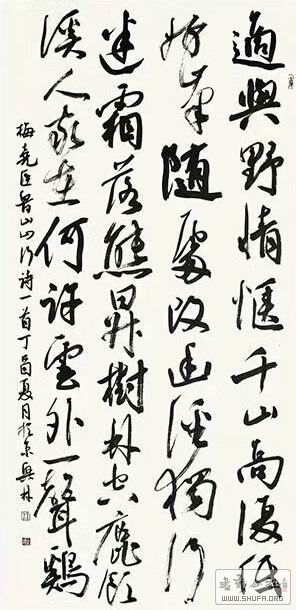 適與野情愜千山高復低
好峯隨處改幽徑獨行
迷霜落熊昇樹林空鹿飲
溪人家在何許雲外一聲鷄
梅堯臣魯山山行詩一首丁酉夏月於京興林
WWW.SHUFA.ORG